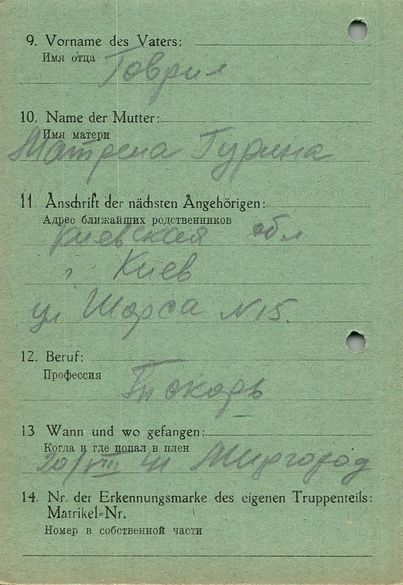 9. Vorname des Vaters:
Имя отца
Говрил
10. Name der Mutter:
Имя матери
Матрена Гурина
11 Anschrift der nächsten Angehörigen:
Адрес ближайших родственников
Киевская обл
г Киев
ул Шорса N 15.
12. Beruf:
Профессия
Токарь
13 Wann und wo gefangen:
Когда и где попал в плен
20/VIII 41 Миргород
14. Nr. der Erkennungsmarke des eigenen Truppenteils:
Matrikel-Nr.
Номер в собственной части